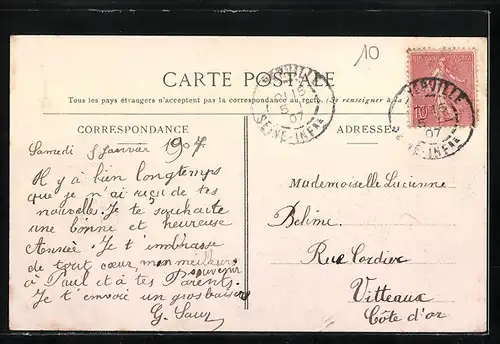 10
CARTE POSTALE
Tous les pays étrangers n'acceptent pas la correspondance au recto. (Se renseigner à la
CORRESPONDANCE
Samedi 5 Janvier 1907
Il y à bien longtemps
que je n'ai reçu de tes
nouvelle. Je te souhaite
une bonne et heureuse
Année. Je t'embrasse
de tout cœur, mon meilleurs
souvenir
à Paul et à tes Parents.
Je t'envoie un gros baiser
G.
ADRESSE
Mademoiselle Lucienne
Belime
Rue Cordier
Vitteaux
Côte d'or
YERVILLE
5
07
SEINE-INFRE
10
YERVILLE
07